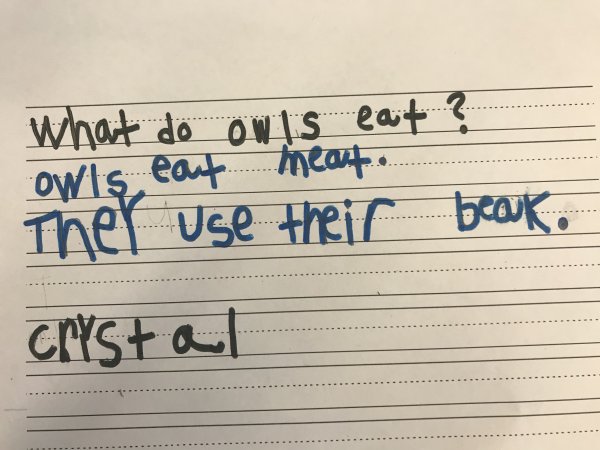 What do owls eat?
owls eat meat.
They use their beak.
crystal